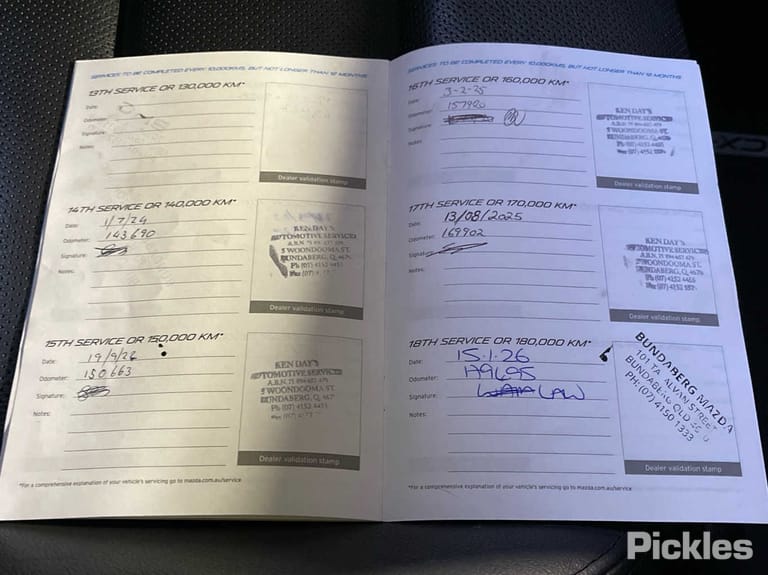 SERVICES TO BE COMPLETED EVERY 10,000KMS, BUT NOT LONGER THAN 12 MONTHS
13TH SERVICE OR 130,000 KM*
Date:
Odometer:
Signature:
Notes:
Dealer validation stamp
14TH SERVICE OR 140,000 KM*
Date: 1/7/24
Odometer: 143690
Signature:
Notes:
KEN DAY'S
AUTOMOTIVE SERVICES
5 WOONDOOMA ST.
BUNDABERG, Q.
Dealer validation stamp
15TH SERVICE OR 150,000 KM*
Date:
Odometer: 150663
Signature:
Notes:
KEN DAY'S
AUTOMOTIVE SERVICES
5 WOONDOOMA ST.
BUNDABERG, Q.
Dealer validation stamp
*For a comprehensive explanation of your vehicle's servicing go to mazda.com.au/service
SERVICES TO BE COMPLETED EVERY 10,000KMS, BUT NOT LONGER THAN 12 MONTHS
16TH SERVICE OR 160,000 KM*
Date: 3-2-25
Odometer: 157920
Signature:
Notes:
KEN DAY'S
AUTOMOTIVE SERVICES
5 WOONDOOMA ST.
BUNDABERG, Q.
Dealer validation stamp
17TH SERVICE OR 170,000 KM*
Date: 13/08/2025
Odometer: 169902
Signature:
Notes:
KEN DAY'S
AUTOMOTIVE SERVICES
5 WOONDOOMA ST.
BUNDABERG, Q.
Dealer validation stamp
18TH SERVICE OR 180,000 KM*
Date: 15.1.26
Odometer: 179695
Signature: LAW
Notes:
BUNDABERG MAZDA
STREET
BUNDABERG QLD
PH: (07) 4150 1333
Dealer validation stamp
*For a comprehensive explanation of your vehicle's servicing go to mazda.com.au/service
Pickles